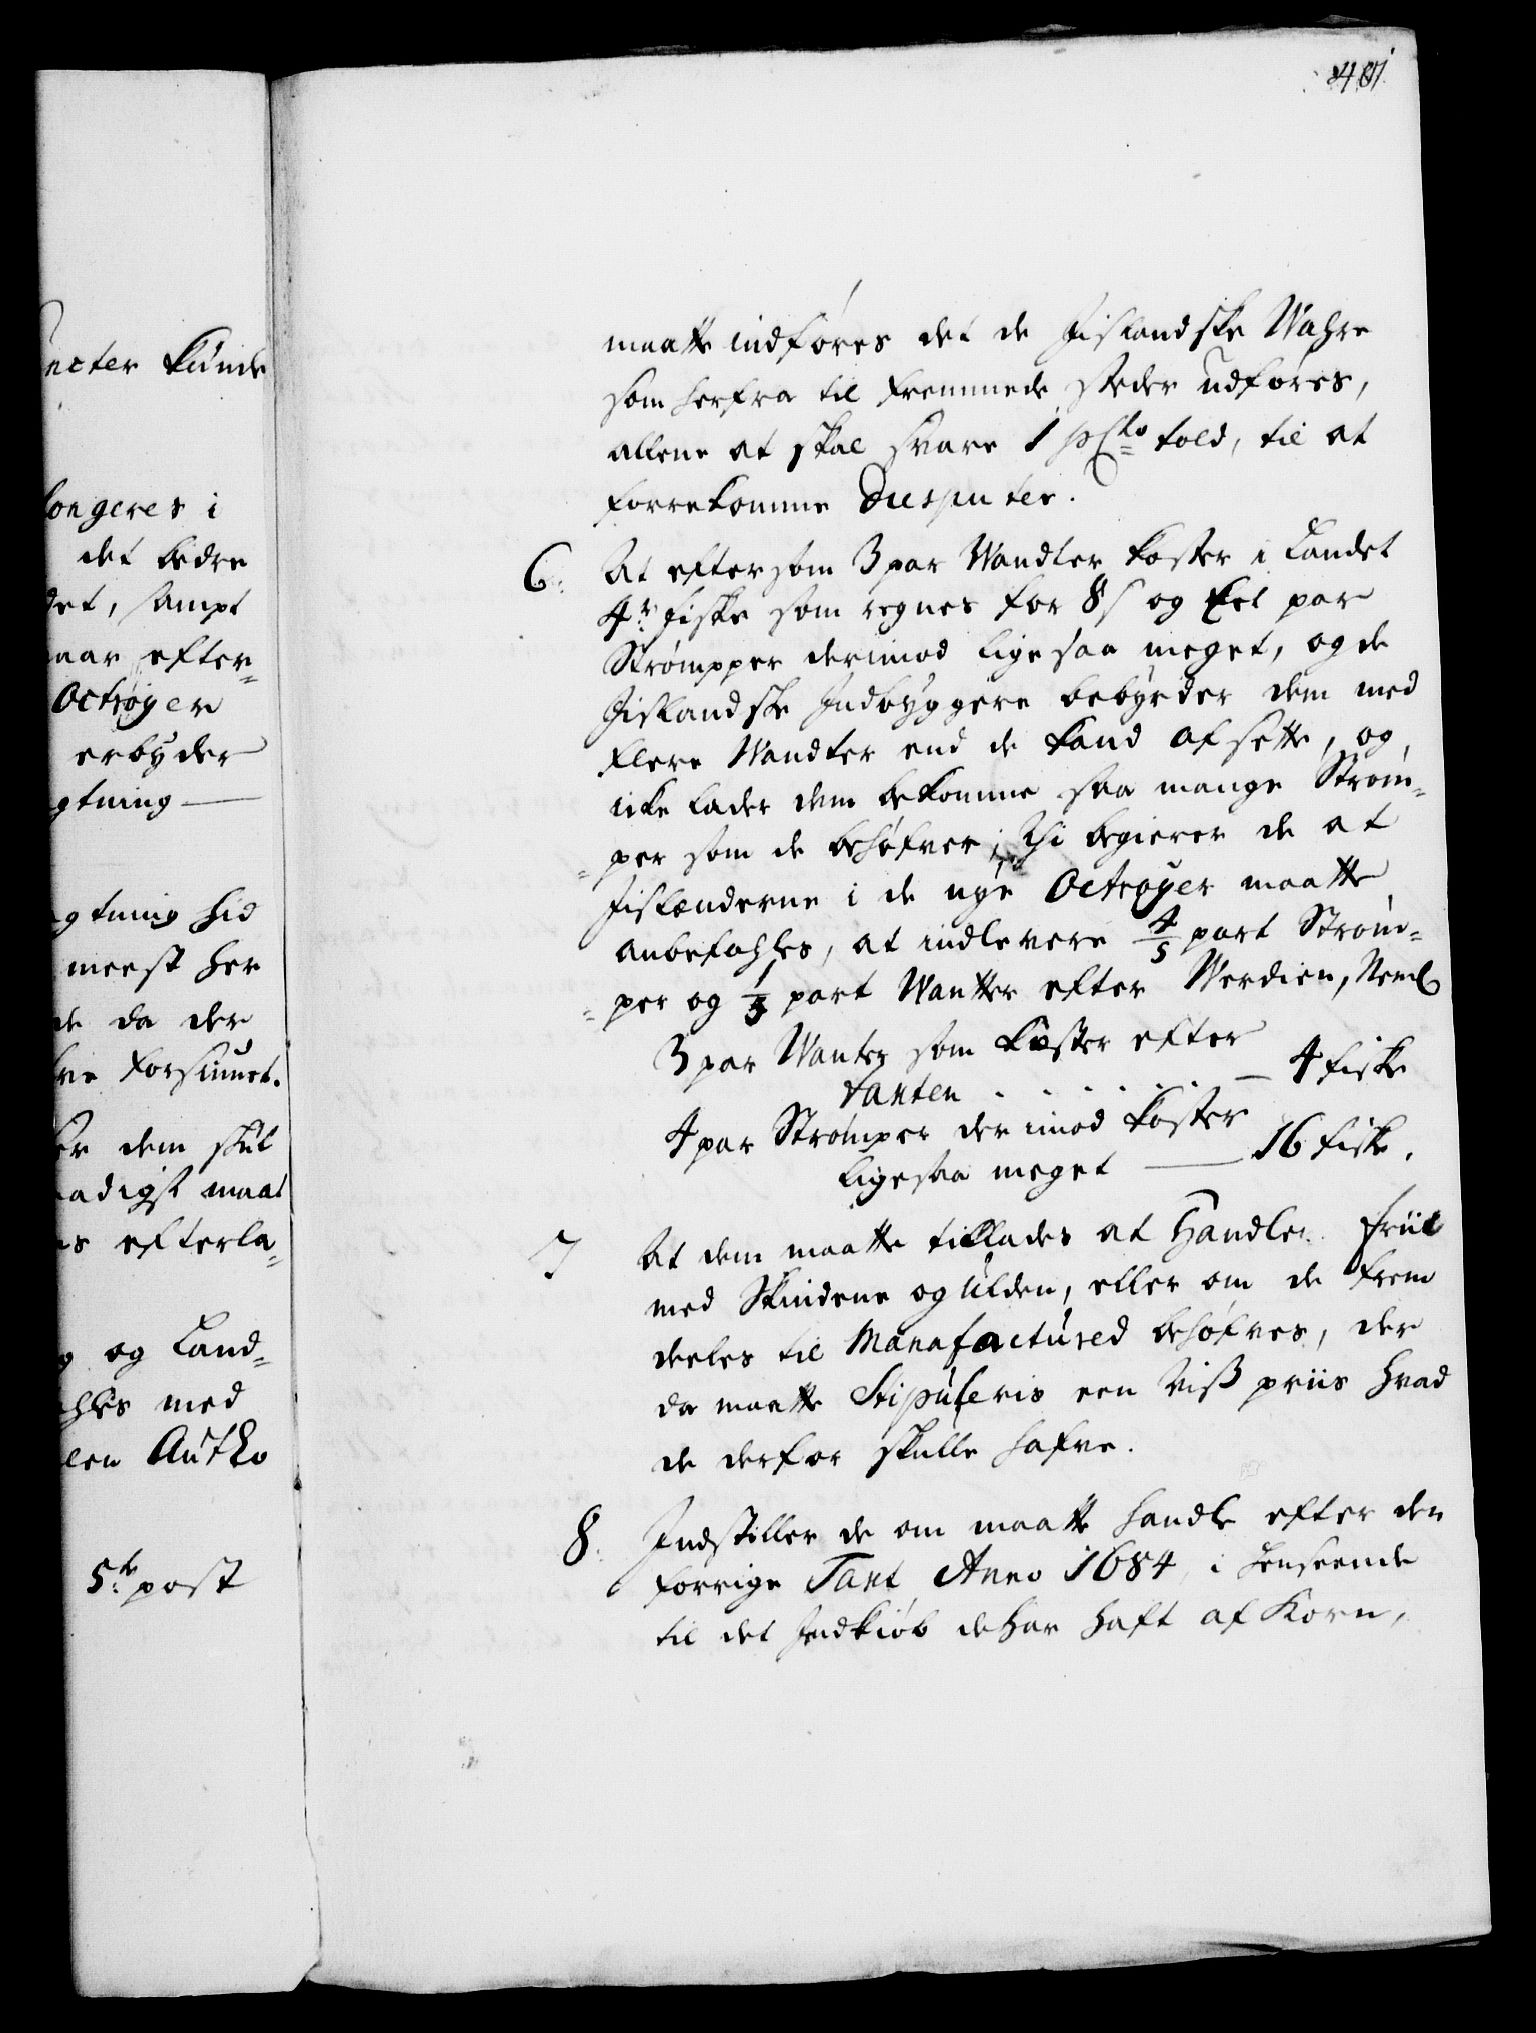 401
ncter kunde
longeres i
det bedre
det, sampt
aar efter-
Octrøyer
erbyder
gtning
gtning hid
meest her
de da der
fve forsiunet.
er dem skul
aadigst maat
es efterla-
og Land-
hles med
len Autho
5te post
maatte indføres det de Jislandske Wahre
som herfra til fremmede steder udføres,
allene at skal svare 1 pCto told, til at
forrekomme Dusputer.
6. At eftersom 3 par Wandter koster i Landet
4re fiske som regnes for 8 s og Eet par
Strømpper derimod ligesaa meget, og de
Jislandske Indbyggere bebyrder dem med
flere Wandter end de kand afsette, og
icke lader dem bekomme saa mange Strøm-
per som de behøfver; Thi begierer de at
Jislænderne i de nye Octroyer maatte
anbefahles, at indlevere 4/5 part Strøm-
per og 1/5 part Wantter efter Werdien, Neml
3 par Wanter som koster efter
taxten . . . . . . 4 fiske
4 par Strømper derimod koster
ligesaa meget 16 fiske.
7 At dem maatte tillades at Handle friit
med Skindene og Ulden, eller om de frem
deeles til Manufactured behøfves, der
da maatte Stipuleris een Viss priis hvad
de derfor skulle hafve.
8. Indstiller de om maatte handle efter den
forrige Taxt Anno 1684, i henseende
til det Indkiøb de har haft af Korn,